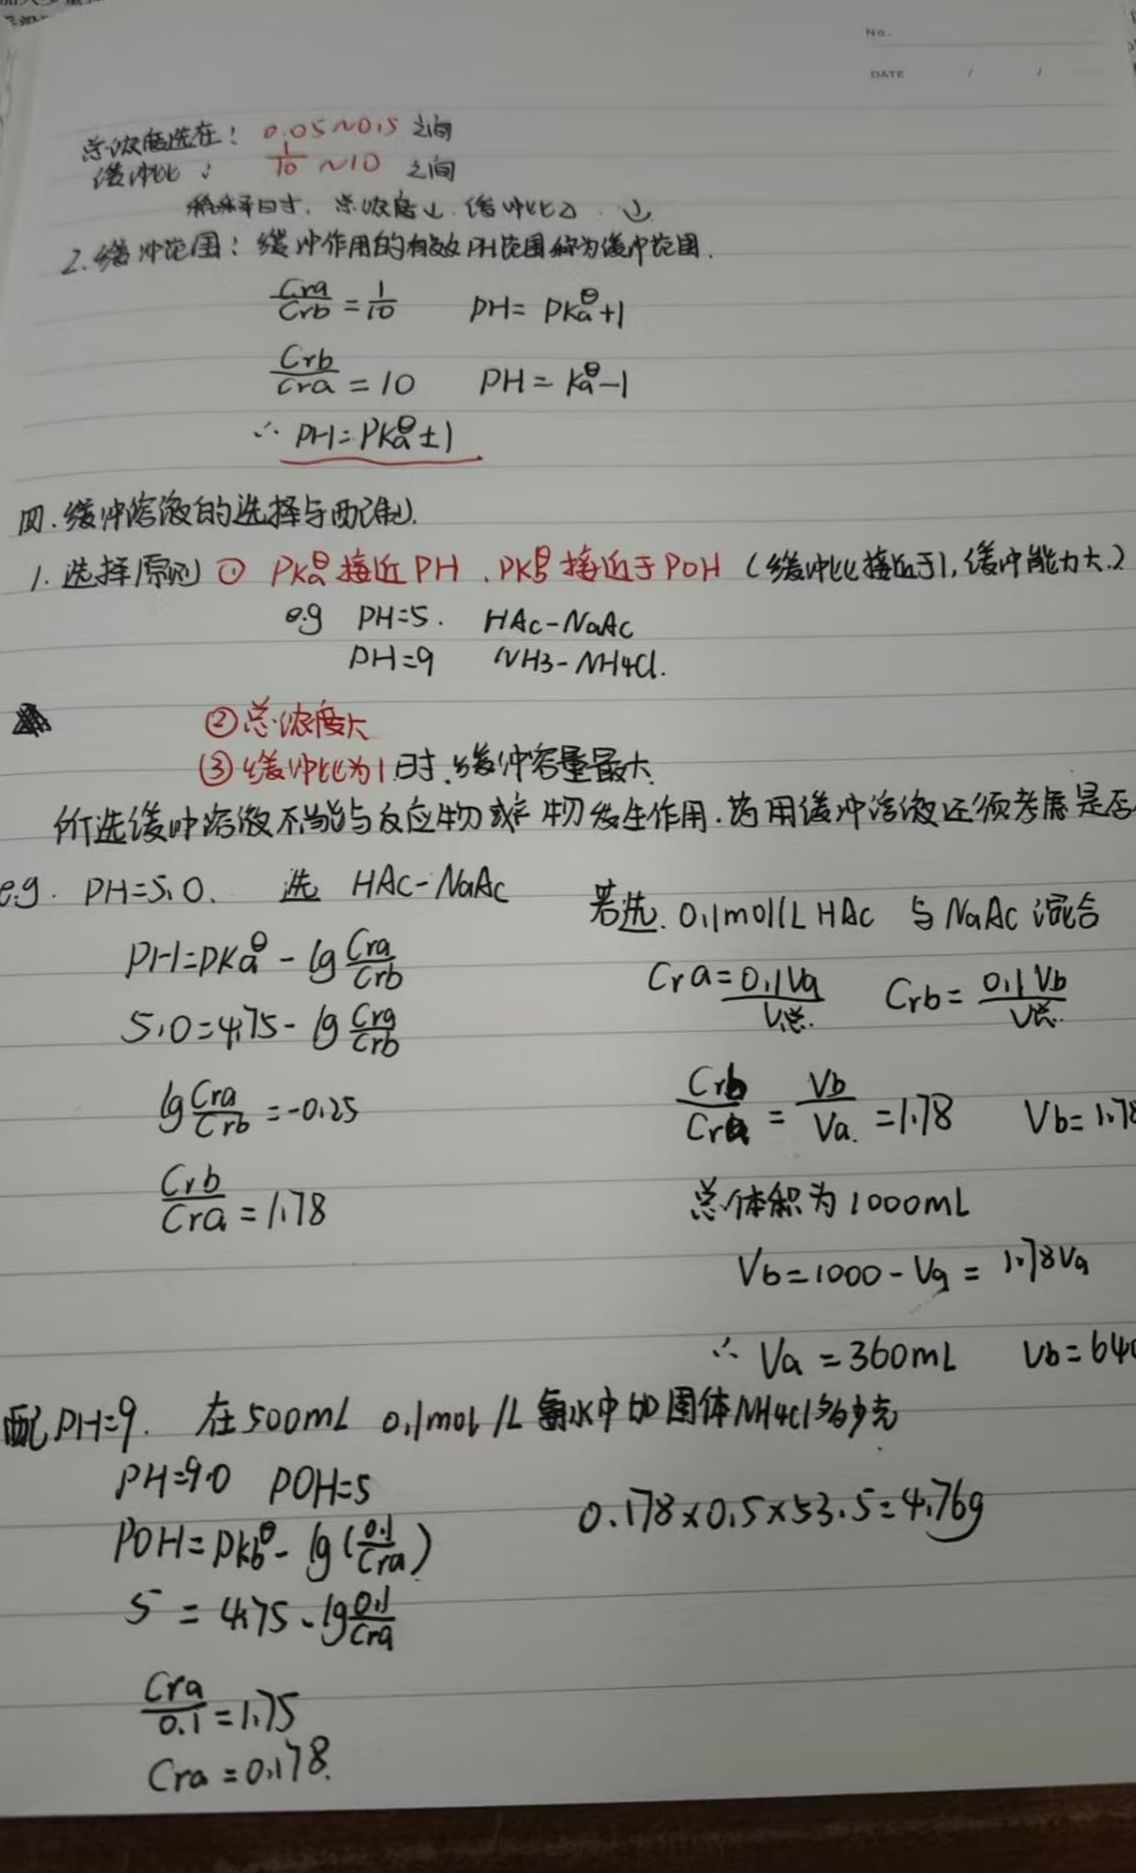 No.
DATE / /
总浓度选在: 0.05~0.5 之间
缓冲比: 1/10 ~10 之间
稀释时. 总浓度↓. 缓冲比
2.缓冲范围: 缓冲作用的有效PH范围称为缓冲范围.
Cra/Crb = 1/10 PH= PKa^θ+1
Crb/Cra = 10 PH= Ka^θ-1
∴ PH=PKa^θ±1
四.缓冲溶液的选择与配制.
1. 选择原则 ① PKa^θ接近PH . PKb^θ接近于POH (缓冲比接近于1, 缓冲能力大.)
e.g PH=5. HAc-NaAc
PH=9 NH3-NH4Cl.
②总浓度大
③缓冲比为1时. 缓冲容量最大.
所选缓冲溶液不能与反应物或产物发生作用. 药用缓冲溶液还须考虑是否
e.g. PH=5.0. 选 HAc-NaAc
若选. 0.1mol/L HAc 与NaAc混合
PH=PKa^θ - lg Cra/Crb
Cra=0.1Va/V总. Crb= 0.1Vb/V总.
5.0=4.75- lg Cra/Crb
lg Cra/Crb =-0.25
Crb/Cra = Vb/Va. =1.78 Vb=1.78
Crb/Cra =1.78
总体积为1000mL
Vb=1000-Va= 1.78Va
∴ Va=360mL Vb=640
配PH=9. 在500mL 0.1mol/L 氨水中加固体NH4Cl多少克
PH=9.0 POH=5
0.178×0.5×53.5=4.76g
POH=PKb^θ- lg(0.1/Cra)
5 = 4.75 - lg 0.1/Cra
Cra/0.1 =1.75
Cra=0.178.